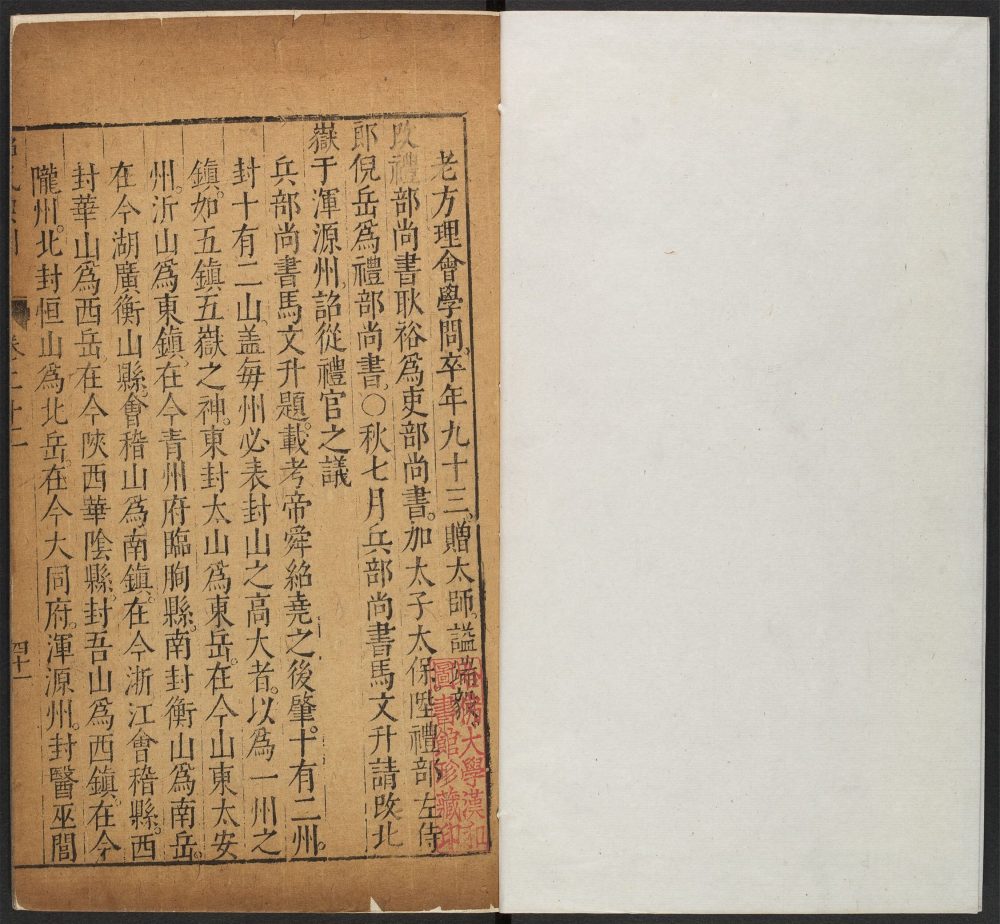 老方理會學問。卒年九十三。贈太師。謚端毅
改禮部尚書耿裕爲吏部尚書。加太子太保陞禮部左侍
郎倪岳爲禮部尚書。〇秋七月兵部尚書馬文升請改北
嶽于渾源州。詔從禮官之議
兵部尚書馬文升題。載考帝舜紹堯之後肇十有二州。
封十有二山。盖每州必表封山之高大者。以爲一州之
鎮。如五鎮五嶽之神。東封太山爲東岳。在今山東太安
州。沂山爲東鎮。在今青州府臨朐縣。南封衡山爲南岳。
在今湖廣衡山縣。會稽山爲南鎮。在今浙江會稽縣。西
封華山爲西岳。在今陝西華陰縣。封吾山爲西鎮。在今
隴州。北封恒山爲北岳。在今大同府。渾源州。封醫巫閭
卷二十二
四十一
大學漢和
圖書館珍藏印